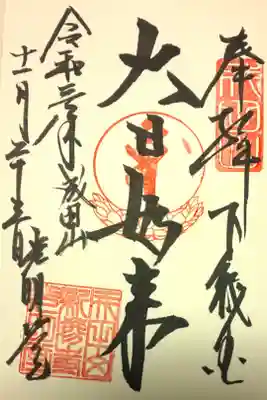 奉拝 下総国
大日如来
令和三年 成田山
十一月二十三日 光明堂
成田山
新勝寺